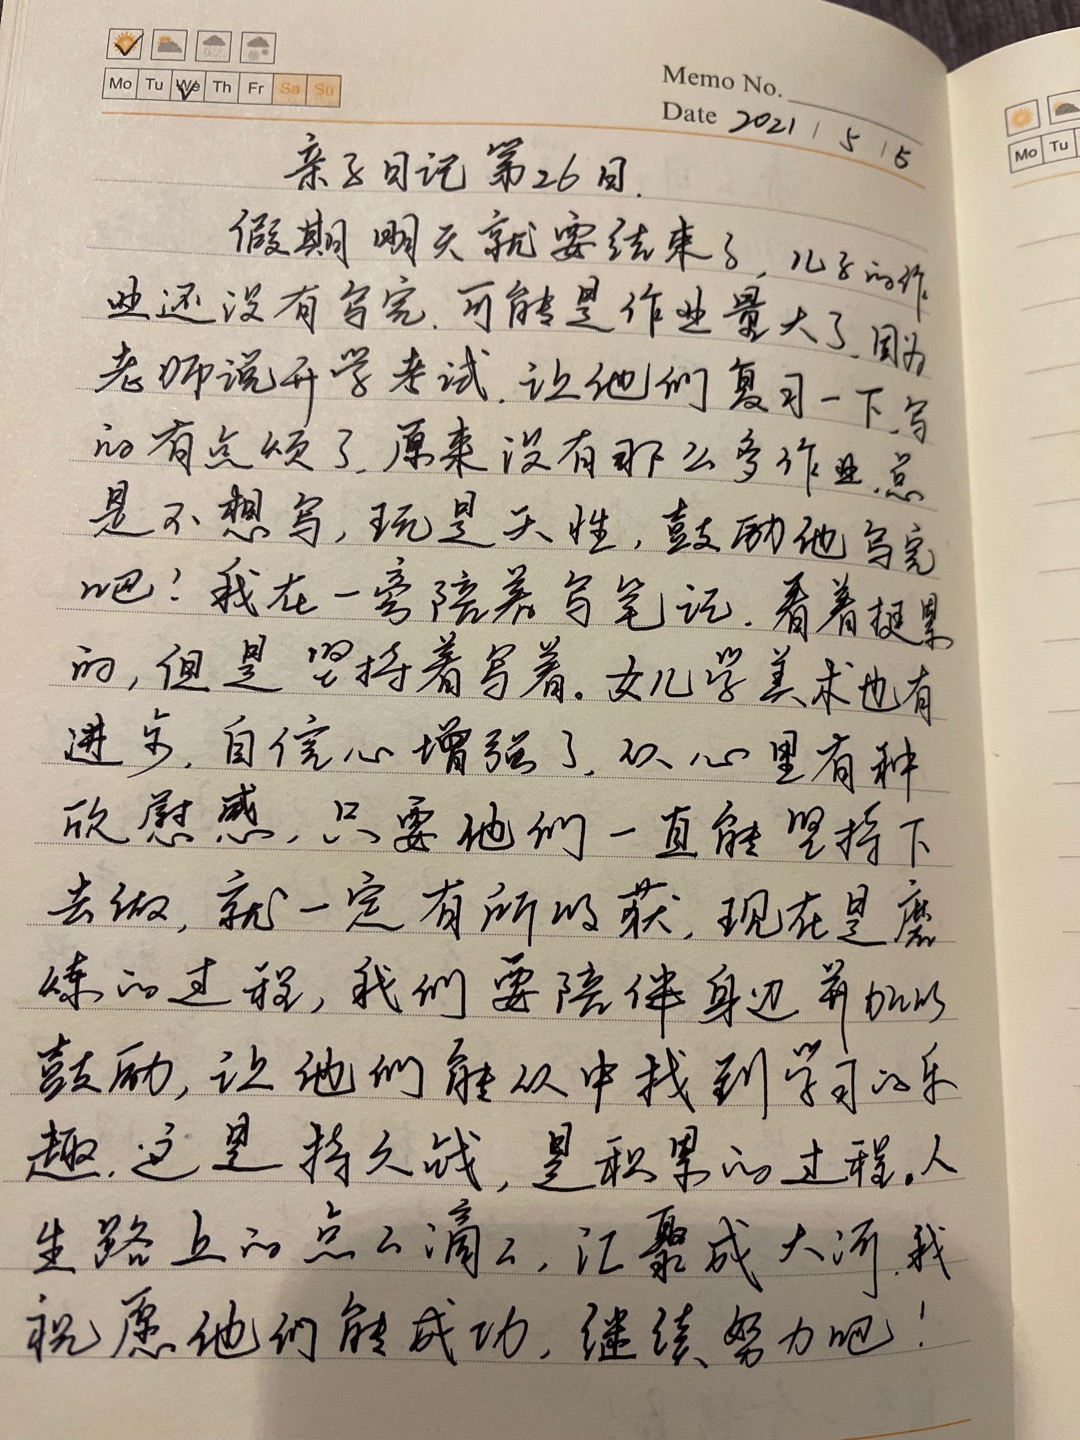 Mo Tu We Th Fr Sa Su
Memo No.
Date 2021 / 5 / 5
亲子日记 第26日.
假期明天就要结束了,儿子的作
业还没有写完.可能是作业量大了.因为
老师说开学考试.让他们复习一下.写
的有点烦了.原来没有那么多作业.总
是不想写,玩是天性,鼓励他写完
吧!我在一旁陪着写笔记.看着挺累
的,但是坚持着写着。女儿学美术也有
进步.自信心增强了.从心里有种
欣慰感,只要他们一直能坚持下
去做,就一定有所收获,现在是磨
炼的过程,我们要陪伴身边并加以
鼓励,让他们能从中找到学习的乐
趣.这是持久战,是积累的过程。人
生路上的点点滴滴,汇聚成大河.我
祝愿他们能成功,继续努力吧!
Mo Tu